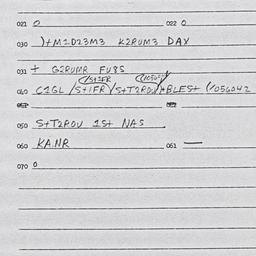 021 0 022 0
030 )+M1D23M3 K2RUM3 DAY
031 + G2RUMR FU8S
(S+1FR
040 C1GL /S+1FR/S+T2ROV/+BLES+ (/056042
050 S+T2ROV 1S+ NAS
060 KA.NR 061 —
070 0